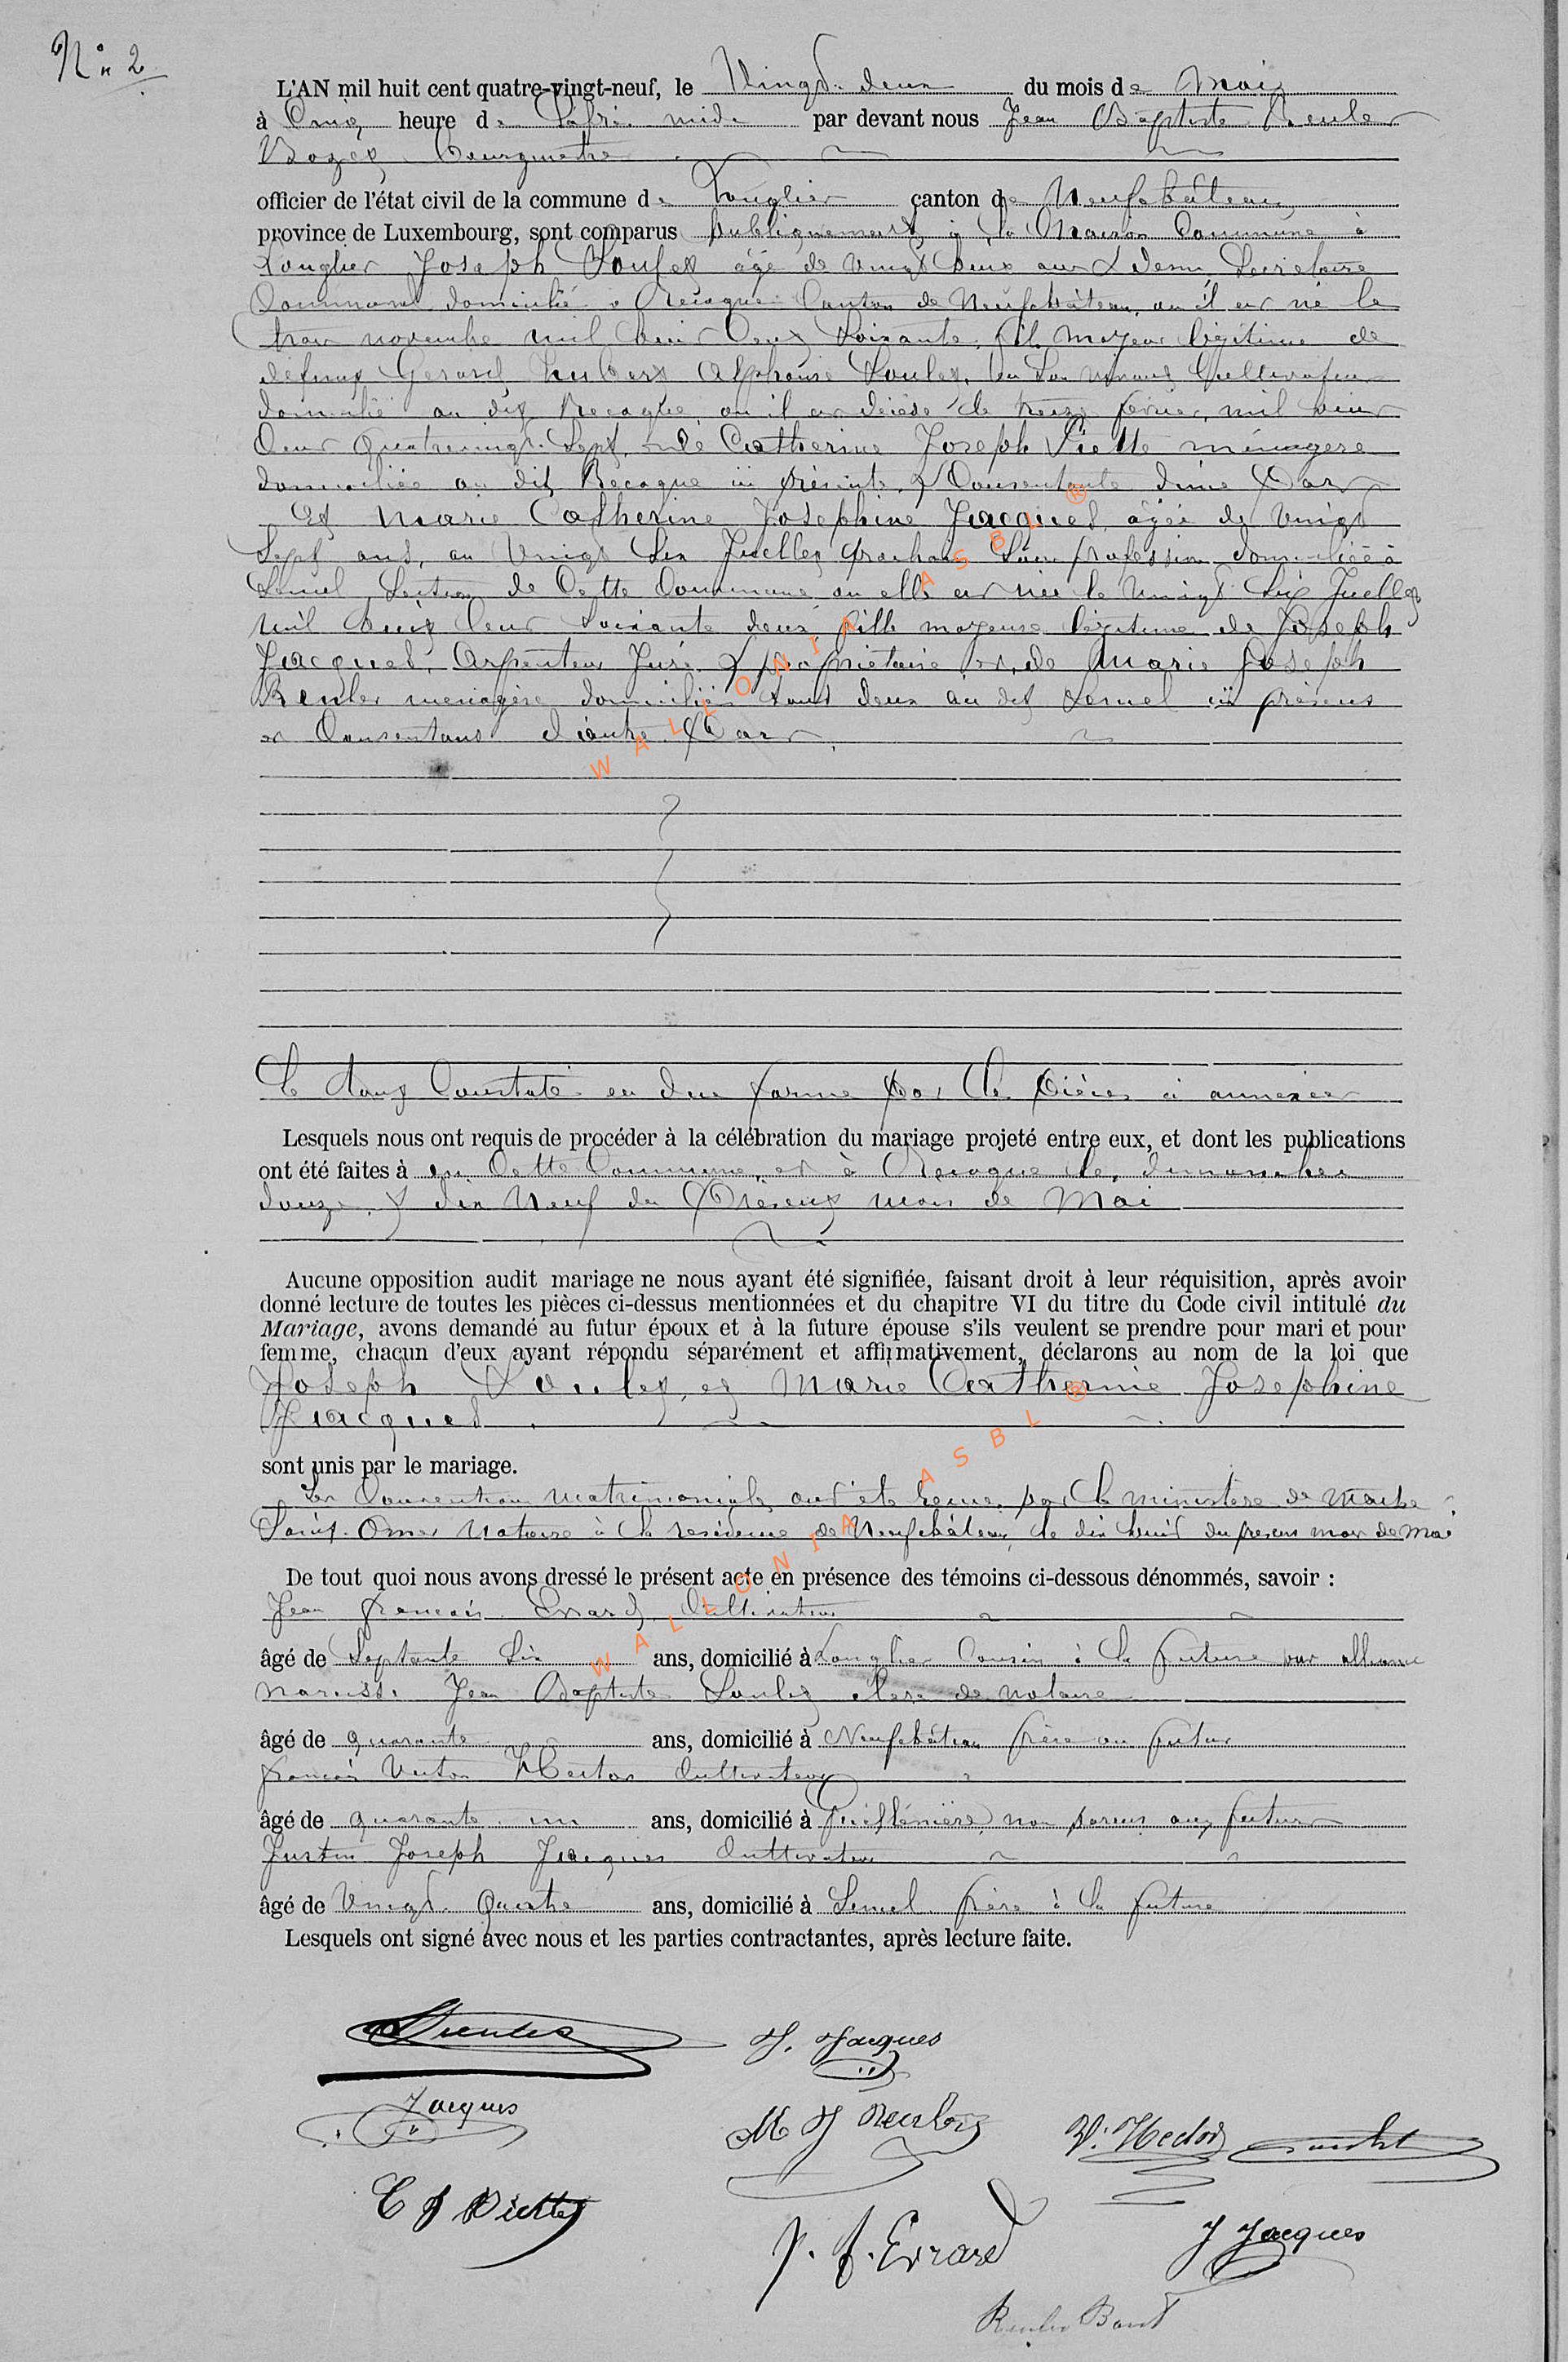 N° 2
L'AN mil huit cent quatre-vingt-neuf, le Vingt-deux du mois de Mai
à Cinq heure de l'après midi par devant nous Jean Baptiste Reuler
Bourgmestre
officier de l'état civil de la commune de Longlier canton de Neufchâteau
province de Luxembourg, sont comparus publiquement à la Maison Commune à
Longlier Joseph Soulet âgé de Vingt ans & demi, Secrétaire
Communal domicilié à Recogne Canton de Neufchâteau, où il est né le
trois novembre mil huit Cent Soixante, fils majeur légitime de
défunt Gerard Hubert Alphonse Soulet, en son vivant Cultivateur
domicilié au dit Recogne où il est décédé le treize février mil huit
Cent Quatrevingt-Sept, et de Catherine Joseph Piette ménagère
domiciliée au dit Recogne ici présente & Consentante d'une Part
Et Marie Catherine Josephine Jacques, âgée de Vingt
Sept ans, au Vingt Six Juillet prochain Sans profession domiciliée à
Lemel, Section de Cette Commune où elle est née le Vingt Six Juillet
mil huit Cent Soixante deux, fille majeure légitime de Joseph
Jacques, Arpenteur Juré & propriétaire et de Marie Joseph
Reuler ménagère domiciliés tous deux au dit Lemel ici présents
et Consentans d'autre Part.
Le tout Constaté en due forme par les pièces ci annexées
Lesquels nous ont requis de procéder à la célébration du mariage projeté entre eux, et dont les publications
ont été faites à en Cette Commune et à Recogne les dimanches
douze & dix Neuf du Présent mois de Mai
Aucune opposition audit mariage ne nous ayant été signifiée, faisant droit à leur réquisition, après avoir
donné lecture de toutes les pièces ci-dessus mentionnées et du chapitre VI du titre du Code civil intitulé du
Mariage, avons demandé au futur époux et à la future épouse s'ils veulent se prendre pour mari et pour
femme, chacun d'eux ayant répondu séparément et affirmativement, déclarons au nom de la loi que
Joseph Soulet et Marie Catherine Josephine
Jacques
sont unis par le mariage.
Les Conventions matrimoniales ont été par le ministère de Maitre
Saint-Omer Notaire à la résidence de Neufchâteau, le dix huit du présent mois de Mai
De tout quoi nous avons dressé le présent acte en présence des témoins ci-dessous dénommés, savoir :
Jean François Evrard Cultivateur
âgé de Septante Six ans, domicilié à Longlier Cousin à la future par alliance
Narcisse Jean Baptiste Soulet clerc de notaire
âgé de quarante ans, domicilié à Neufchâteau frère au futur
François Victor Hector Cultivateur
âgé de quarante-un ans, domicilié à non parent aux futurs
Justin Joseph Jacques Cultivateur
âgé de Vingt-Quatre ans, domicilié à Lemel frère à la future
Lesquels ont signé avec nous et les parties contractantes, après lecture faite.
J. Jacques
Jacques
M J Reuler
V. Hector
C J Piette
J. f. Evrard
J Jacques
WALLONIA ASBL ®
WALLONIA ASBL ®